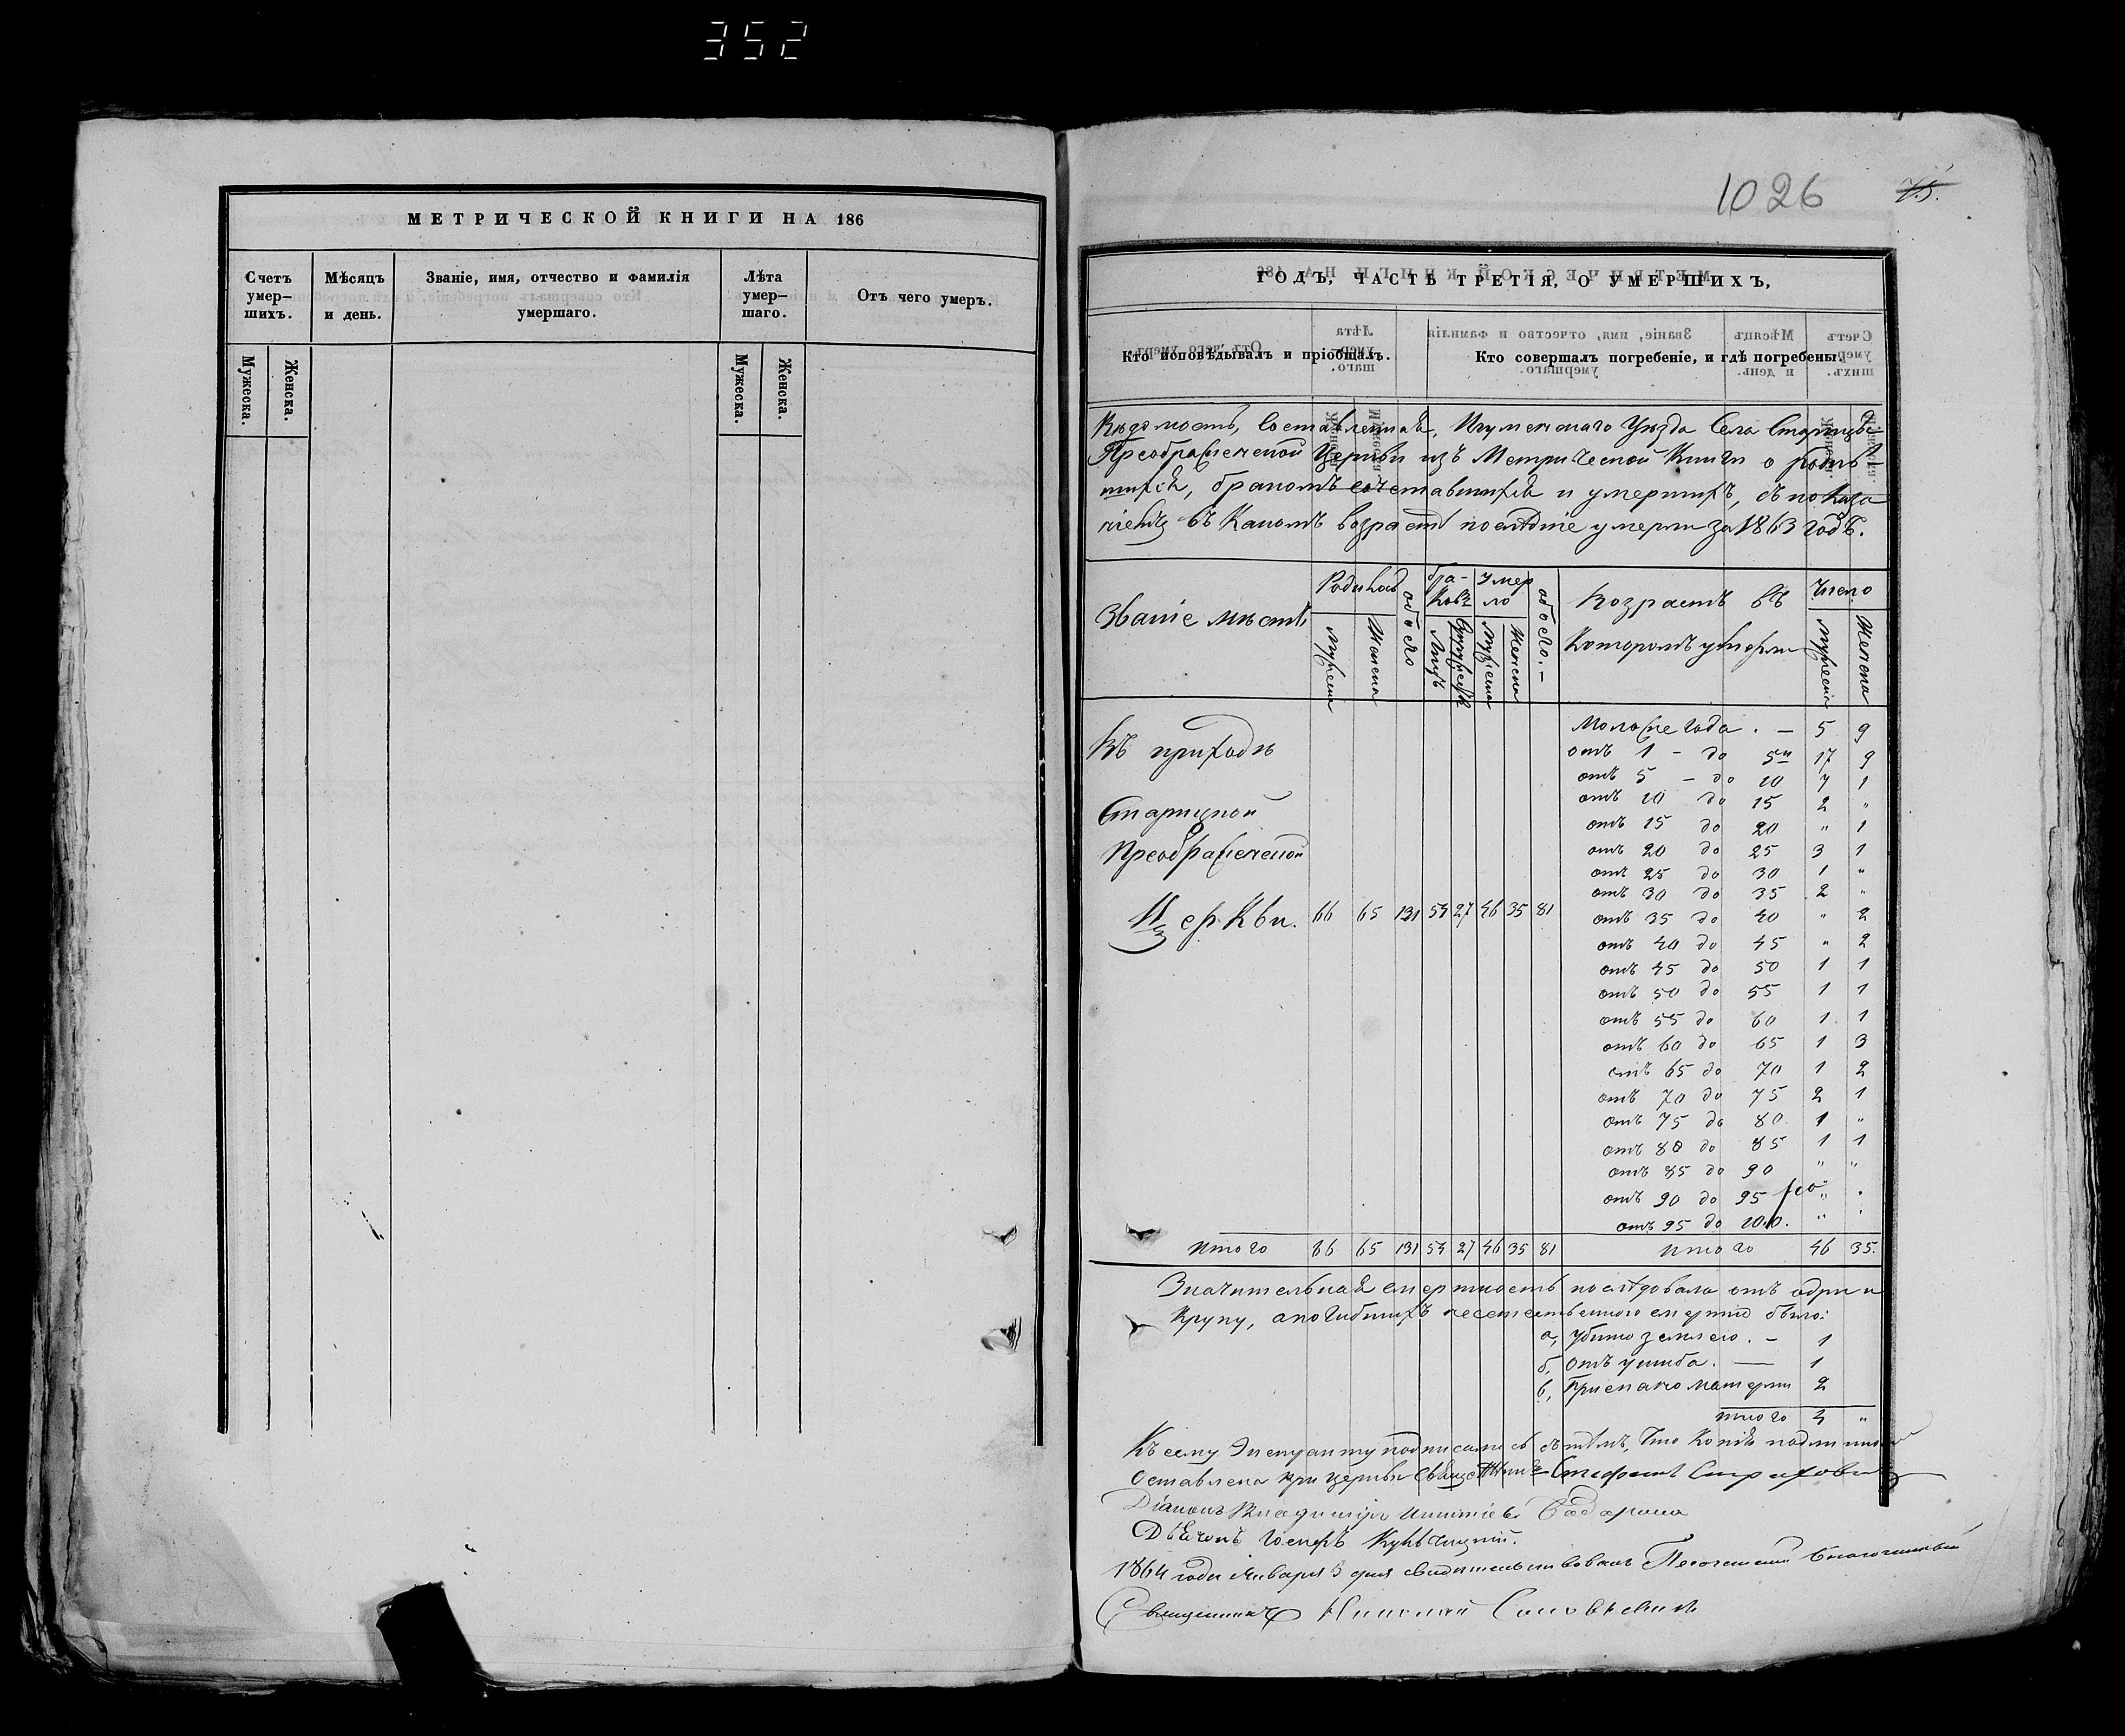 352
МЕТРИЧЕСКОЙ КНИГИ НА 186
Счетъ умер— шихъ.
Мѣсяцъ и день.
Званіе, имя, отчество и фамилія умершаго.
Лѣта умер— шаго.
Отъ чего умеръ.
Мужеска.
Женска.
Мужеска.
Женска.
1026 75.
ГОДЪ, ЧАСТЬ ТРЕТІЯ, О УМЕРШИХЪ,
Кто исповѣдывалъ и пріобщалъ.
Кто совершалъ погребеніе, и гдѣ погребены.
Вѣдомость, Составленная, Игуменскаго Уѣзда Села Старицы
Преображенской Церкви изъ Метрической Книги о родив-
шихся, бракомъ сочетавшихся и умершихъ, съ показа
ніемъ въ Какомъ возрастѣ послѣдніе умерли за 1863 годъ.
Званіе мѣстъ
Родилось
Мужеска
Женска
обоего
бра-ковъ
Лицъ
Супружествъ
умер ло
Мужеска
Женска
обоего.—
Возрастъ въ Которомъ умерли
Число
Мужеска
Женска
Въ приходѣ
Старицкой
Преображенской
Церкви. 66 65 131 54 27 46 35 81
Моложе года . — 5 9
отъ 1 - до 5и 17 9
отъ 5 - до 10 7 1
отъ 10 до 15 2 "
отъ 15 до 20 " 1
отъ 20 до 25 3 1
отъ 25 до 30 1 "
отъ 30 до 35 2 "
отъ 35 до 40 " 2
отъ 40 до 45 " 2
отъ 45 до 50 1 1
отъ 50 до 55 1 1
отъ 55 до 60 1 1
отъ 60 до 65 1 3
отъ 65 до 70 1 2
отъ 70 до 75 2 1
отъ 75 до 80 1 "
отъ 80 до 85 1 1
отъ 85 до 90 " "
отъ 90 до 95 " "
отъ 95 до 100. " "
Итого 66 65 131 54 27 46 35 81 Итого 46 35.
Значительная смертность послѣдовала отъ одры и
Крупу, а погибшихъ неестественного смертію было:
а, убито землею. — 1
б, отъ ушиба. — 1
в, Приспано матерми 2
итого 4 "
Къ сему Экстракту подписались съ тѣмъ, что Копія
Оставлена при церкви Священникъ Стефанъ
Діаконъ Владиміръ
Дьячокъ Іосифъ
1864 года Января 3 дня свидѣтельствовалъ Благочинный
Священникъ Николай